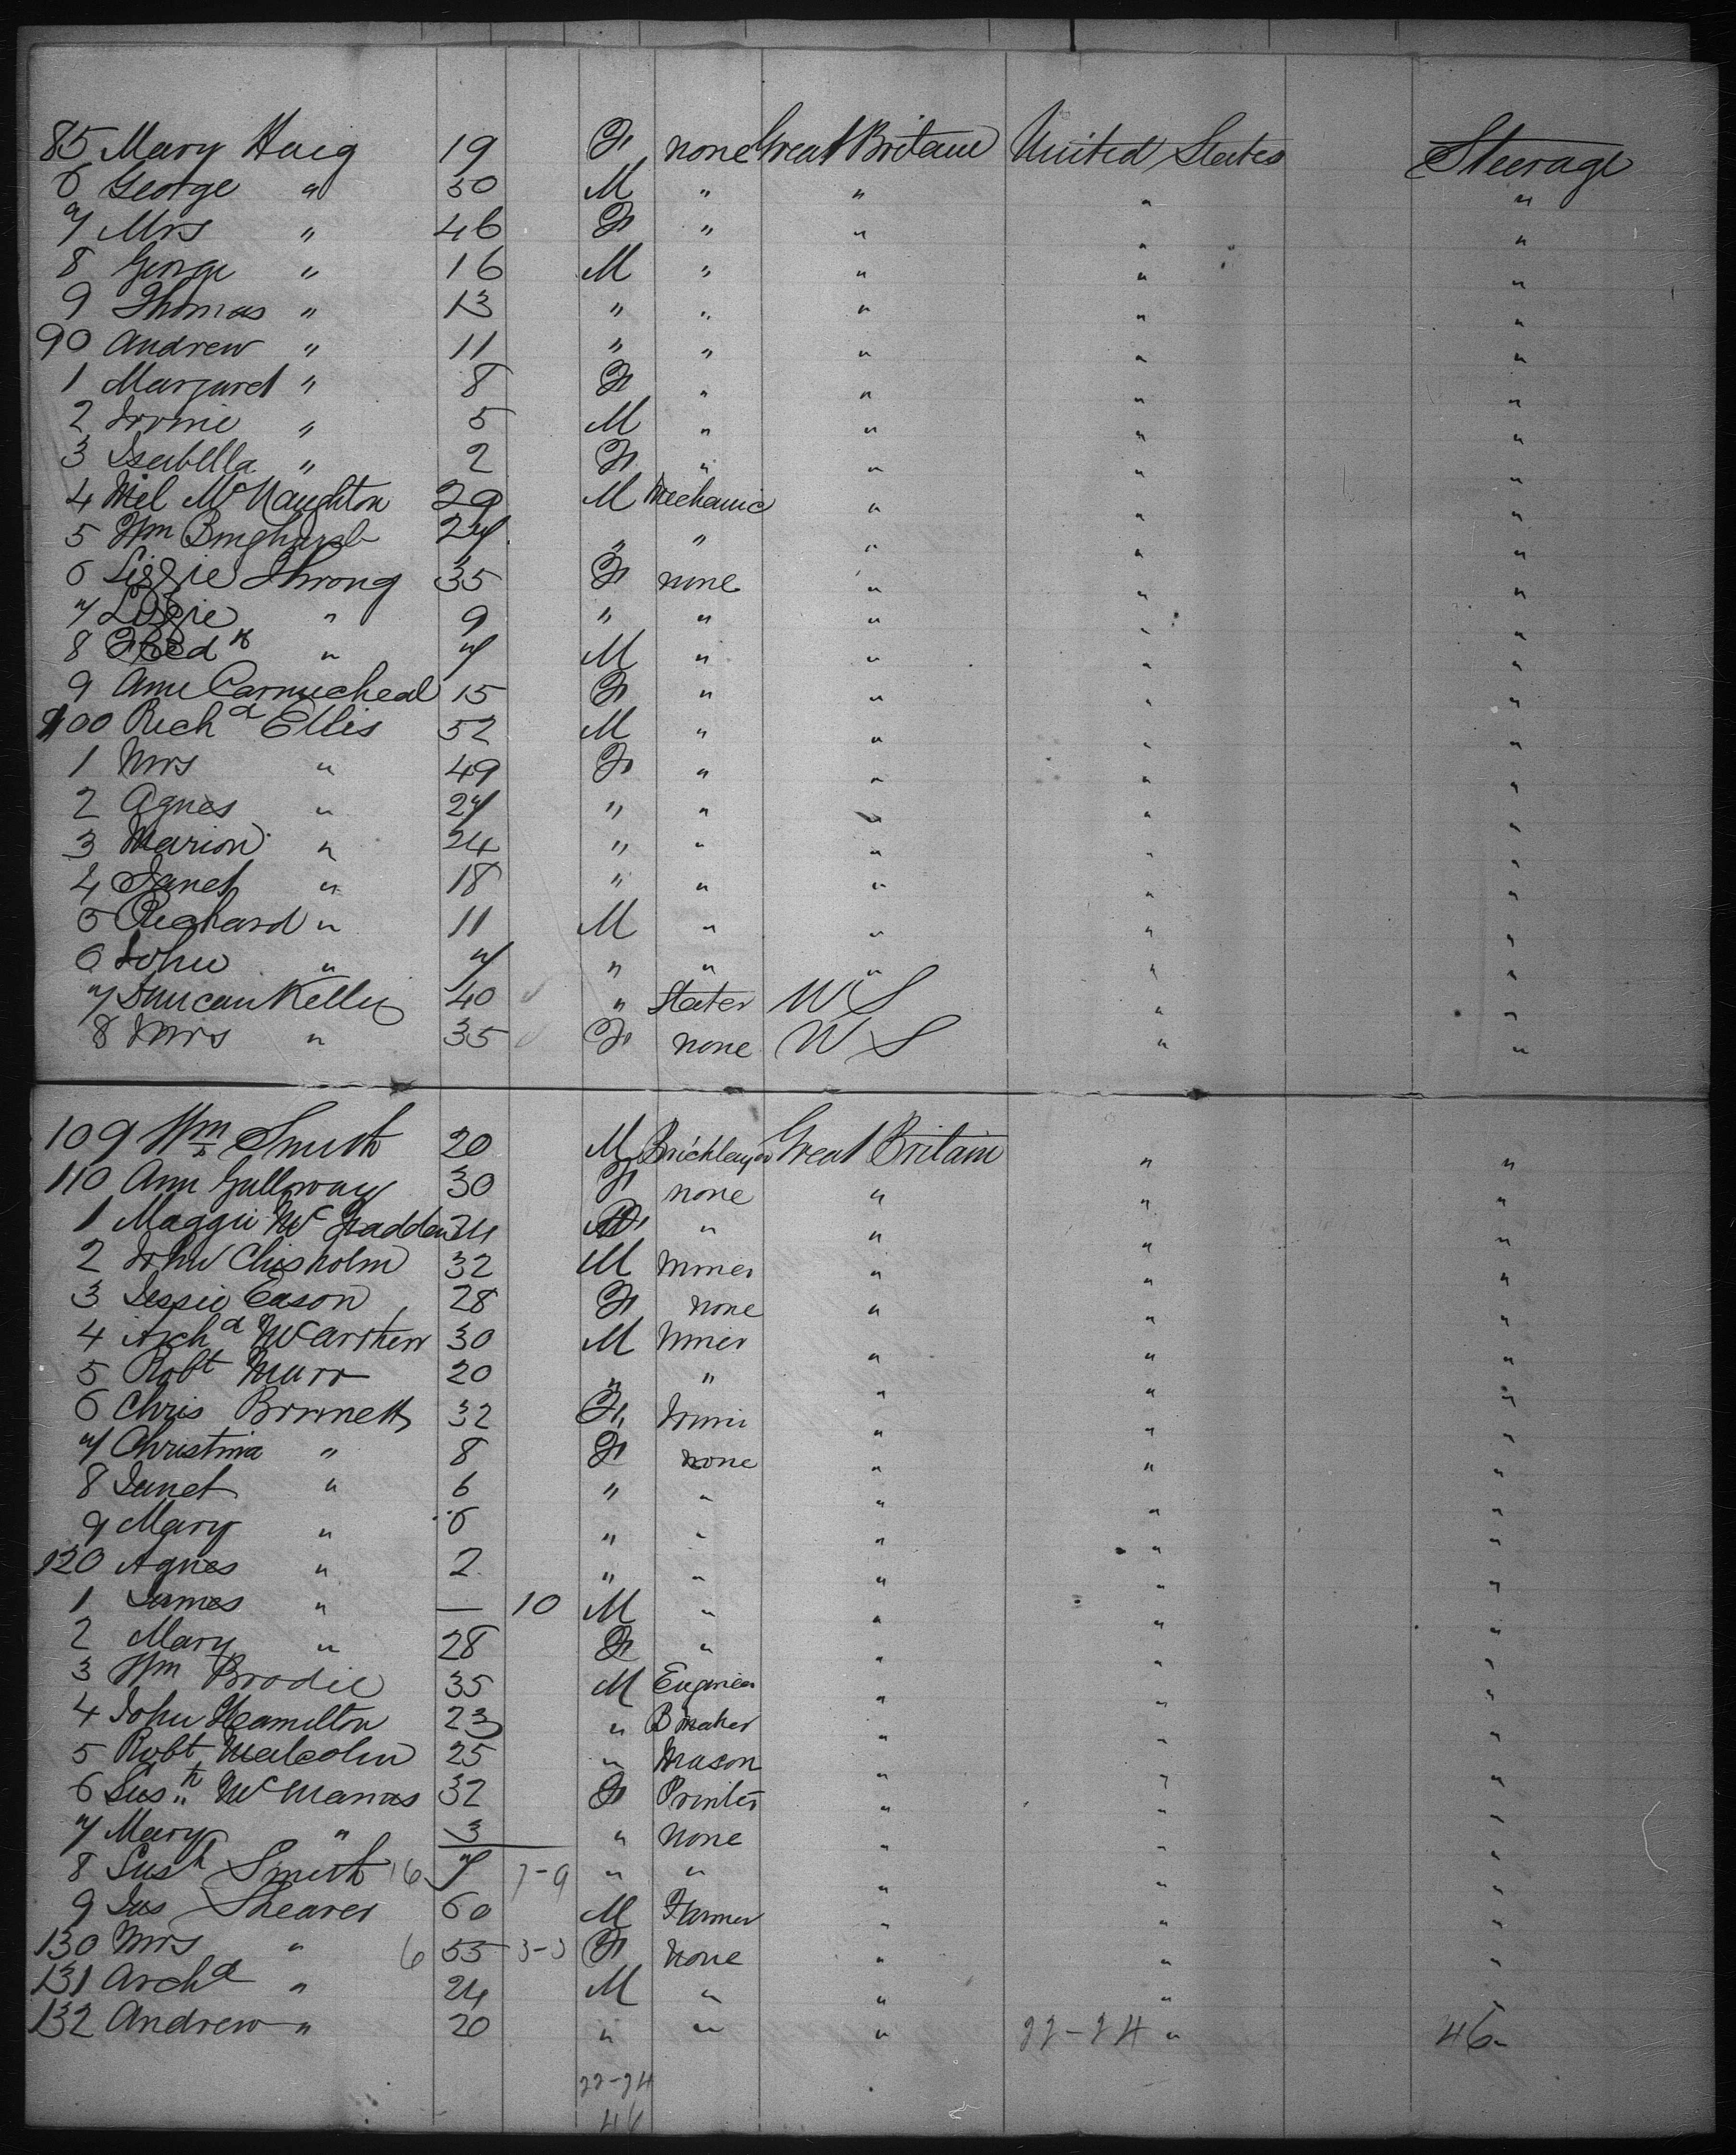 85 Mary Haig 19 F none Great Britain United States Steerage
6 George " 50 M " " " "
7 Mrs " 46 F " " " "
8 George " 16 M " " " "
9 Thomas " 13 " " " " "
90 Andrew " 11 " " " " "
1 Margaret " 8 F " " " "
2 " 5 M " " " "
3 Isabella " 2 F " " " "
4 McNaughton 29 M Mechanic " " "
5 Wm 27 " " " " "
6 Lizzie Throng 35 F none " " "
7 Lizzie " 9 " " " " "
8 Fredk " 7 M " " " "
9 Ann Carmicheal 15 F " " " "
100 Richd Ellis 52 M " " " "
1 Mrs " 49 F " " " "
2 Agnes " 27 " " " " "
3 Marion " 24 " " " " "
4 Janet " 18 " " " " "
5 Richard " 11 M " " " "
6 John " 7 " " " " "
7 Duncan Kelly 40 " Slater U S " "
8 Mrs " 35 F none U S " "
109 Wm Smith 20 M Bricklayer Great Britain " "
110 Ann Galloway 30 F none " " "
1 Maggie McFadden 24 F " " " "
2 John Chisholm 32 M Miner " " "
3 Jessie Eason 28 F none " " "
4 Archd McArthur 30 M Miner " " "
5 Robt Muir 20 " " " " "
6 Chris 32 F " " "
7 Christina " 8 F none " " "
8 Janet " 6 " " " " "
9 Mary " 5 " " " " "
120 Agnes " 2 " " " " "
1 James " — 10 M " " " "
2 Mary " 28 F " " " "
3 Wm Brodie 35 M Engineer " " "
4 John Hamilton 23 " B maker " " "
5 Robt Malcolm 25 " Mason " " "
6 McManus 32 F Printer " " "
7 Mary " 3 " none " " "
8 Smith 16 7 7-9 " " " " "
9 Jas Shearer 60 M Farmer " " "
130 Mrs " 6 55 F none " " "
131 Archd " 24 M " " " "
132 Andrew " 20 " " " 22-24 " 46
22-24
46